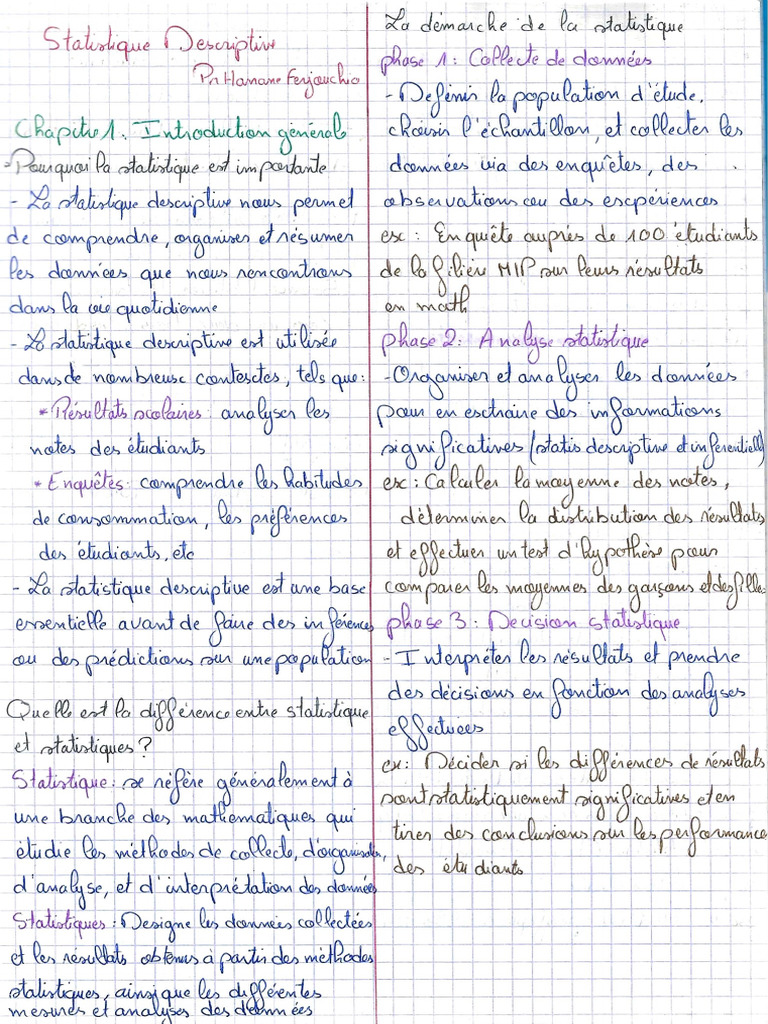 Statistique Descriptive
Pr. Hanane Ferjouchia
Chapitre 1 : Introduction générale
- Pourquoi la statistique est importante
- La statistique descriptive nous permet
de comprendre, organiser et résumer
les données que nous rencontrons
dans la vie quotidienne
- La statistique descriptive est utilisée
dans de nombreuse contextes, tels que:
* Résultats scolaires : analyser les
notes des étudiants
* Enquêtes : comprendre les habitudes
de consommation, les préférences
des étudiants, etc
- La statistique descriptive est une base
essentielle avant de faire des inférences
ou des prédictions sur une population
Quelle est la différence entre statistique
et statistiques ?
Statistique : se réfère généralement à
une branche des mathematiques qui
étudie les méthodes de collecte, d'organisation,
d'analyse, et d'interprétation des données
Statistiques : Designe les données collectées
et les résultats obtenus à partir des méthodes
statistiques, ainsi que les différentes
mesures et analyses des données
La démarche de la statistique
phase 1 : Collecte de données
- Definir la population d'étude,
choisir l'échantillon, et collecter les
données via des enquêtes, des
observations ou des expériences
ex : Enquête auprès de 100 étudiants
de la filière MIP sur leurs résultats
en math
phase 2 : Analyse statistique
- Organiser et analyser les données
pour en extraire des informations
significatives (statis descriptive et inferentielle)
ex : Calculer la moyenne des notes,
déterminer la distribution des résultats
et effectuer un test d'hypothèse pour
comparer les moyennes des garçons et des filles
phase 3 : Decision statistique
- Interpréter les résultats et prendre
des décisions en fonction des analyses
effectuées
ex : Décider si les différences de résultats
sont statistiquement significatives et en
tirer des conclusions sur les performance
des étudiants